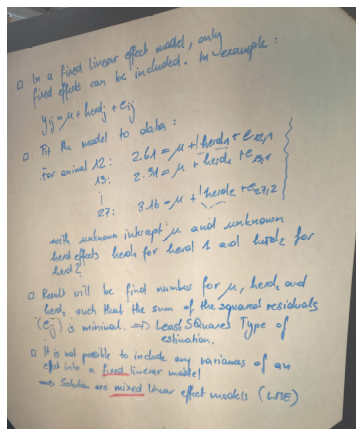 □ In a fixed linear effect model, only
fixed effects can be included. In example:
yij = μ + herdj + eij
□ Fit the model to data:
For animal 12: 2.61 = μ + herd1 + e12,1
13: 2.31 = μ + herd1 + e13,1
27: 3.16 = μ + herd2 + e27,2
with unknown intercept μ and unknown
herd effects herd1 for herd 1 and herd2 for
herd 2
□ Result will be find number for μ, herd1 and
herd2 such that the sum of the squared residuals
(eij) is minimal. ⇒ Least Squares Type of
estimation.
□ It is not possible to include any variances of an
effect into a fixed linear model
⇒ Solution are mixed linear effect models (LME)